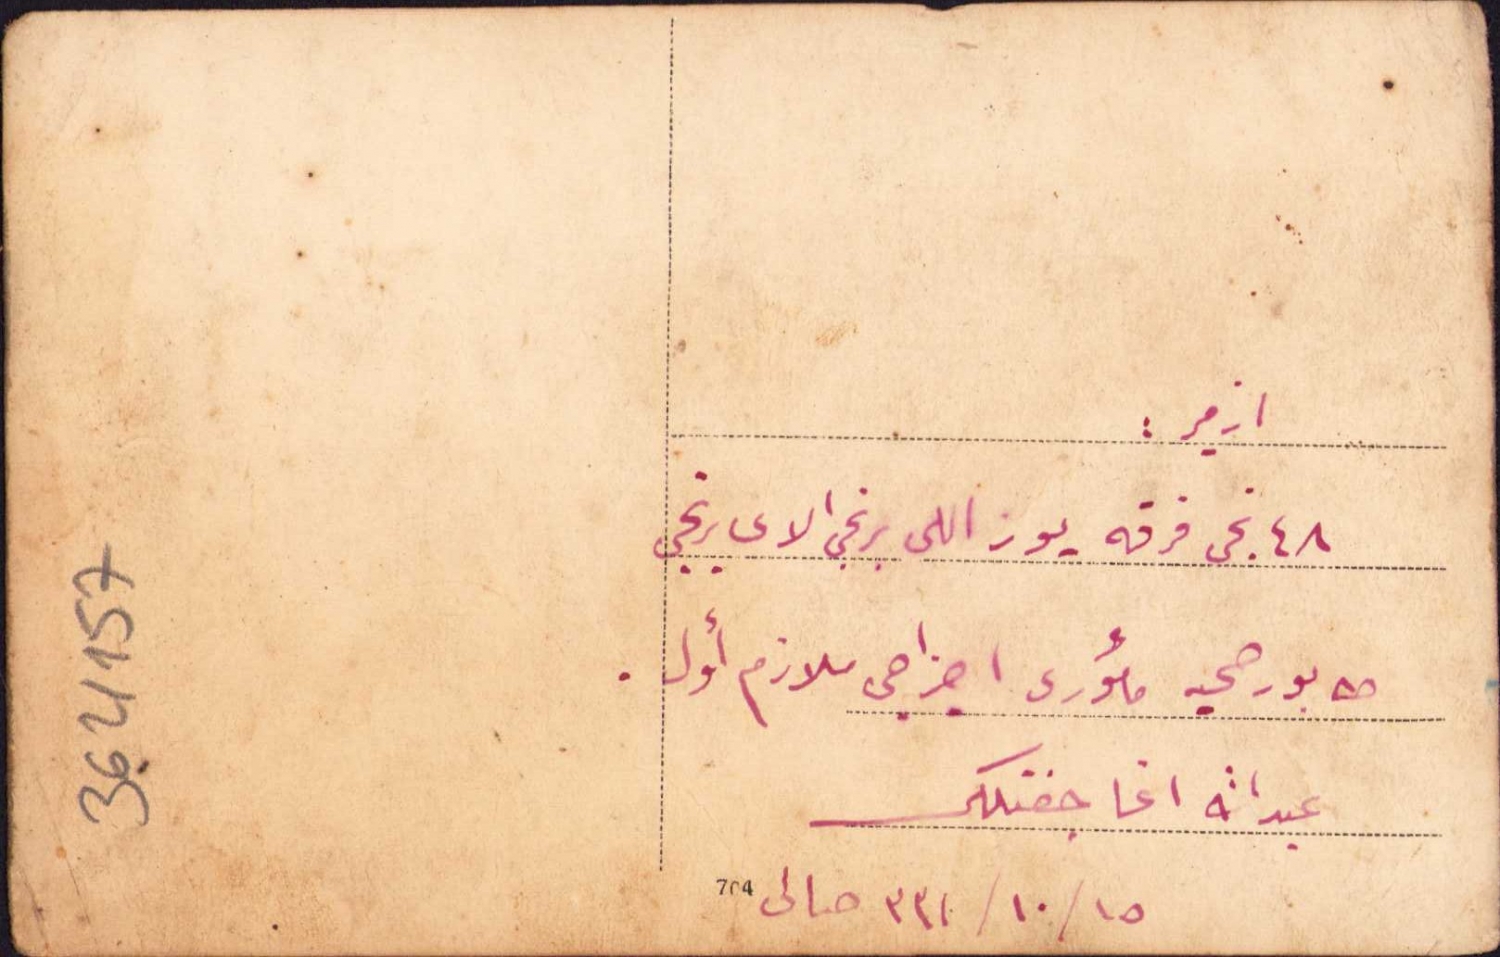 ازمير :
٤٨ نجى فرقه يوز اللى برنجى الاى برنجى
طابور صحيه مأمورى اجزاجى ملازم أول .
عبدالله اغا چفتلكى
١٥ / ١٠ / ٣٣١ صالى
704
364157